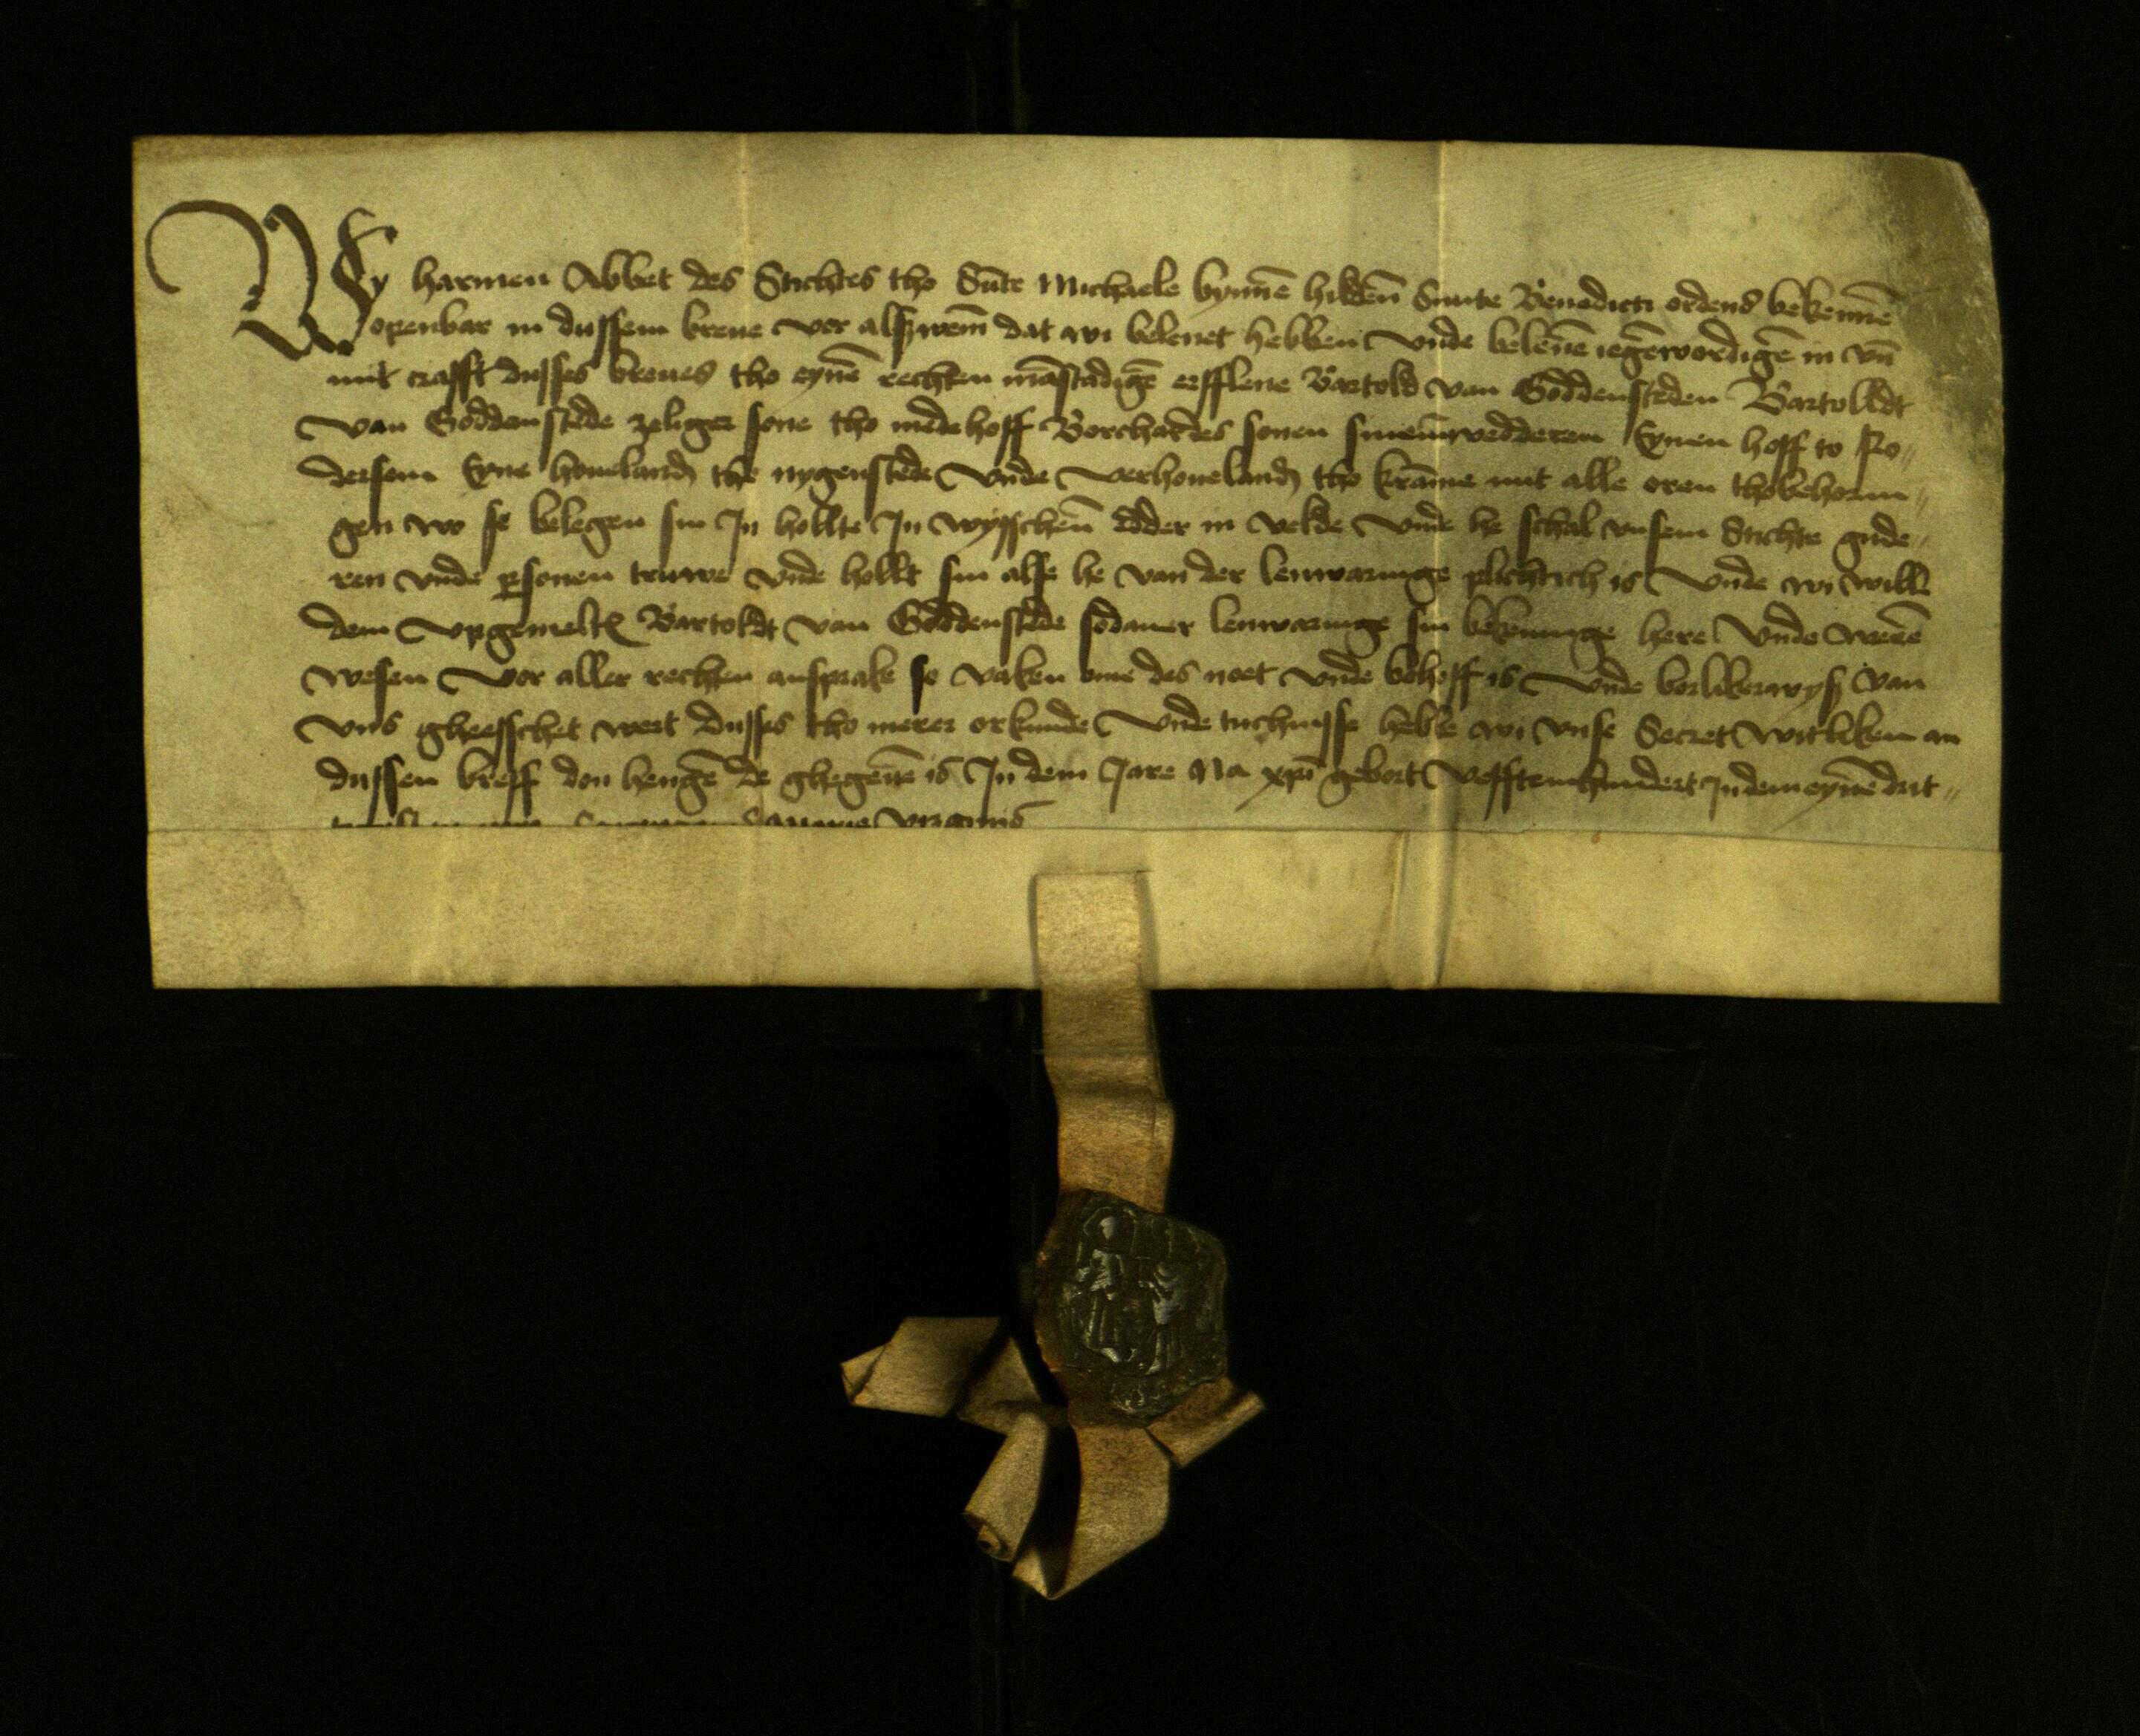 Wy harmen Abbet des Stichtes tho Sūte Michaele bynnē hildēn Sunte Benedicti ordens bekennē
openbar in dussem breue vor alszwem̄ dat wi belenet hebben vnde belenē iegēwordigē in vn̄
mit crafft dusses breues tho eynē rechten māstadigē erfflene Bartold van Goddenstēden Bartolldt
van Goddenstede zeliger sone tho medehoff Borchardes sonen sinem vedderen Eynen hoff to
dersem Eyne houeland the nygenstede vnde verhoueland tho krāme mit alle oren thobehorin〃
gen wo se belegen sin In hollte In wysschen edder in velde vnde he schal vnsem Stichte gude〃
ren vnde ꝑsonen truwe vnde hollt sin alse he van der lenwaringe plichtich is vnde wi will
dem vpgemelt Bartoldt van Goddenstede sodaner lenwaringe sin bekennige here vnde werē
wesen vor aller rechten ansprake so vaken ome des noet vnde behoff is vnde borlikerwysz van
vns gheesschet wert dusses tho merer orkunde vnde tuchnisse hebbe wi vnse Secret witliken an
dussen breff don hengē de ghegeuē is In dem Jare Na xpī gebort vefftemhundert Indem eynē drit〃
virginis